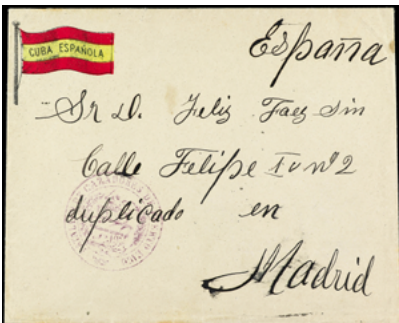 CUBA ESPAÑOLA
España
Sr D. Feliz Faez
Calle Felipe IV nº 2
duplicado en
Madrid